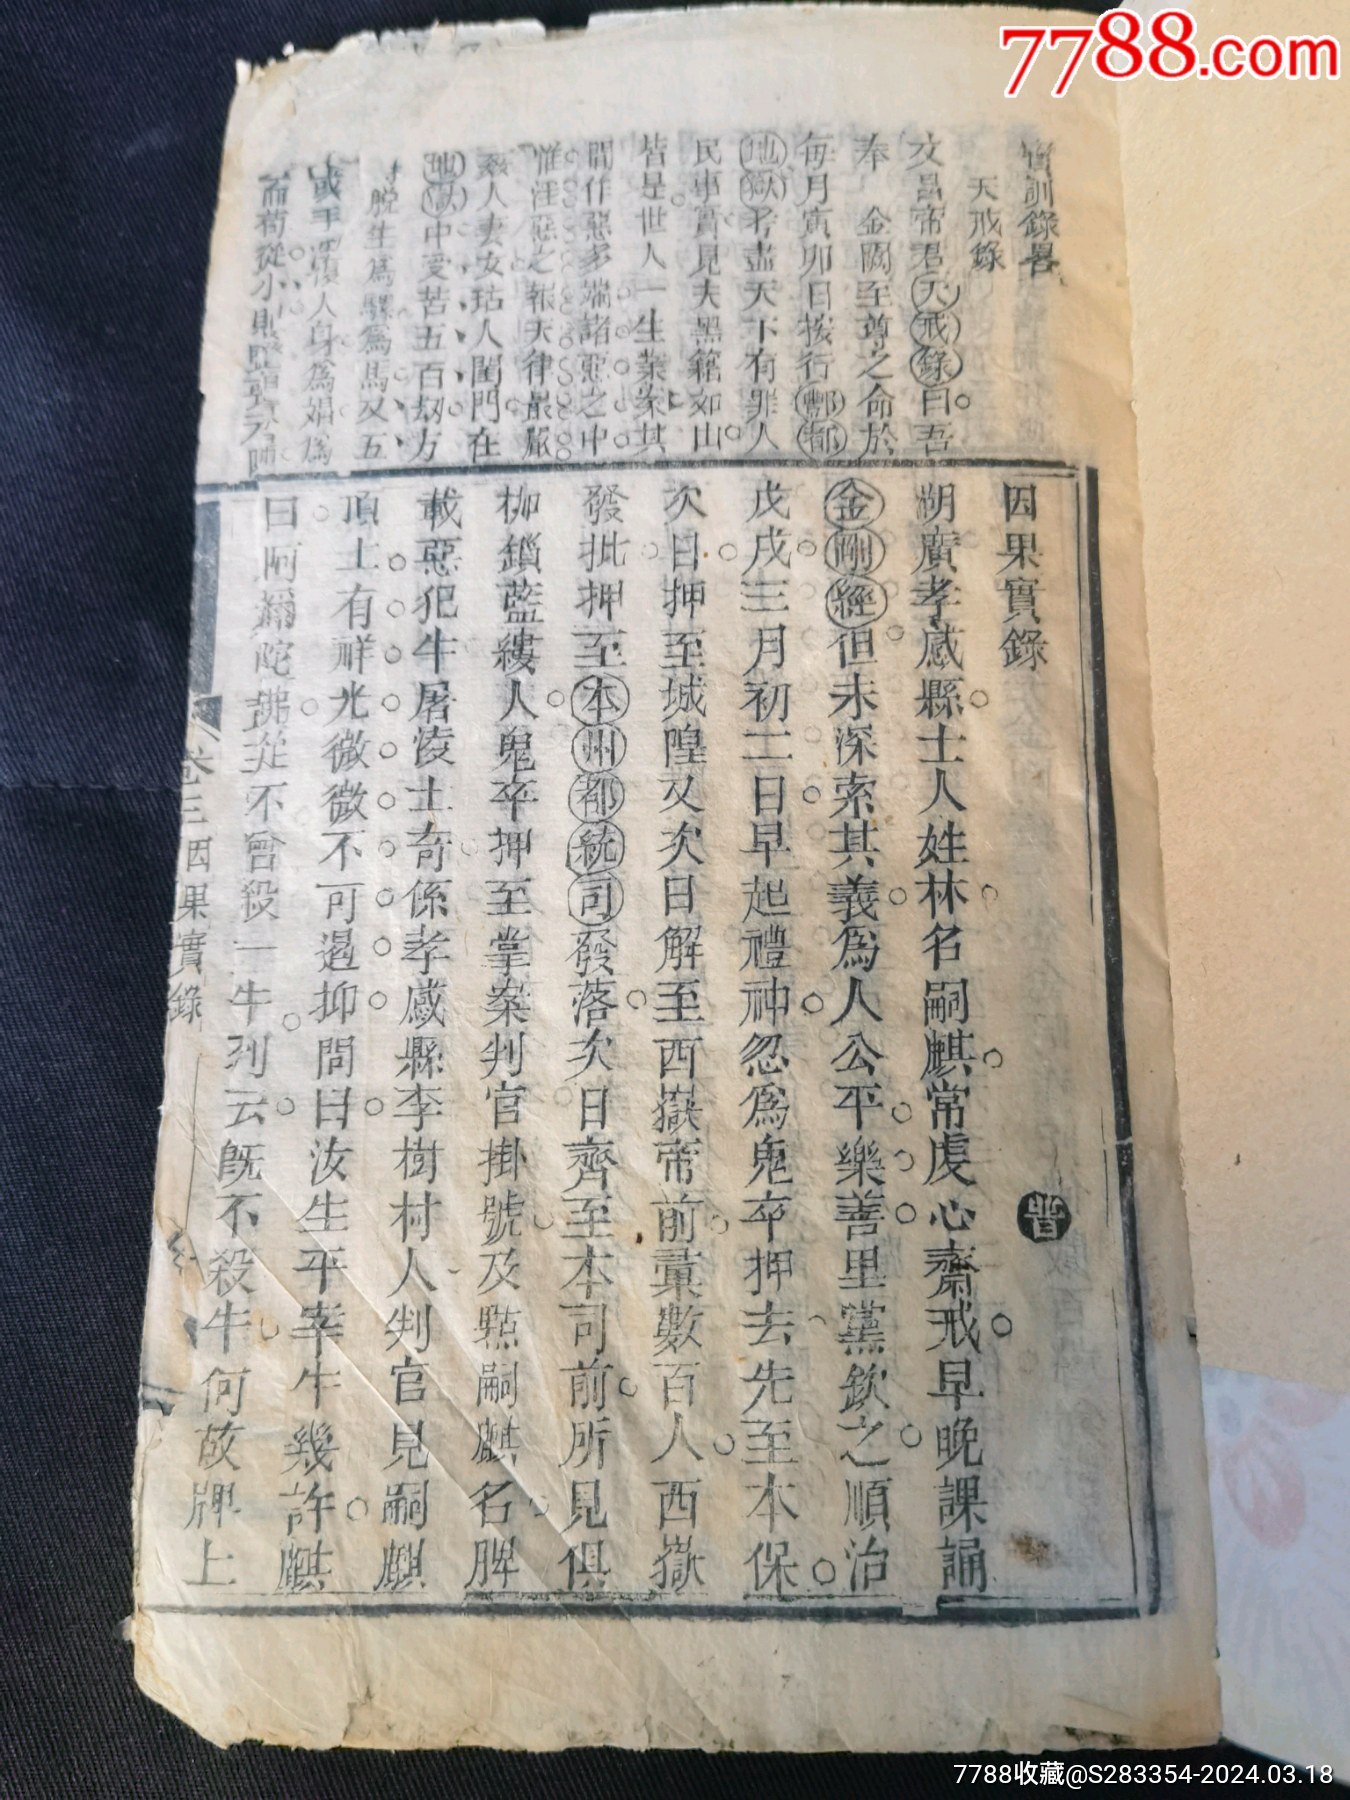 7788.com
寶訓錄畧
天戒錄
文昌帝君天戒錄曰吾
奉 金闕至尊之命於
每月寅卯日按行酆都
地獄考盡天下有罪人
民事實見夫黑籍如山
皆是世人一生業案其
間作惡多端諸惡之中
惟淫惡之報天律最嚴
姦人妻女玷人閨門在
地獄中受苦五百刼方
脫生爲騾爲馬又五
人身爲娼爲
因果實錄
湖廣孝感縣士人姓林名嗣麒常虔心齋戒早晚課誦
金剛經但未深索其義爲人公平樂善里黨欽之順治
戊戌三月初二日早起禮神忽爲鬼卒押去先至本保
次日押至城隍又次日解至西嶽帝前彙數百人西嶽
發批押至本州都統司發落次日齊至本司前所見俱
枷鎖藍縷人鬼卒押至掌案判官掛號及點嗣麒名牌
載惡犯牛屠凌士奇係孝感縣李樹村人判官見嗣麒
頂上有祥光微微不可遏抑問曰汝生平宰牛幾許麒
曰阿彌陀佛從不曾殺一牛列云既不殺牛何故牌上
卷三因果實錄
7788收藏@S283354-2024.03.18